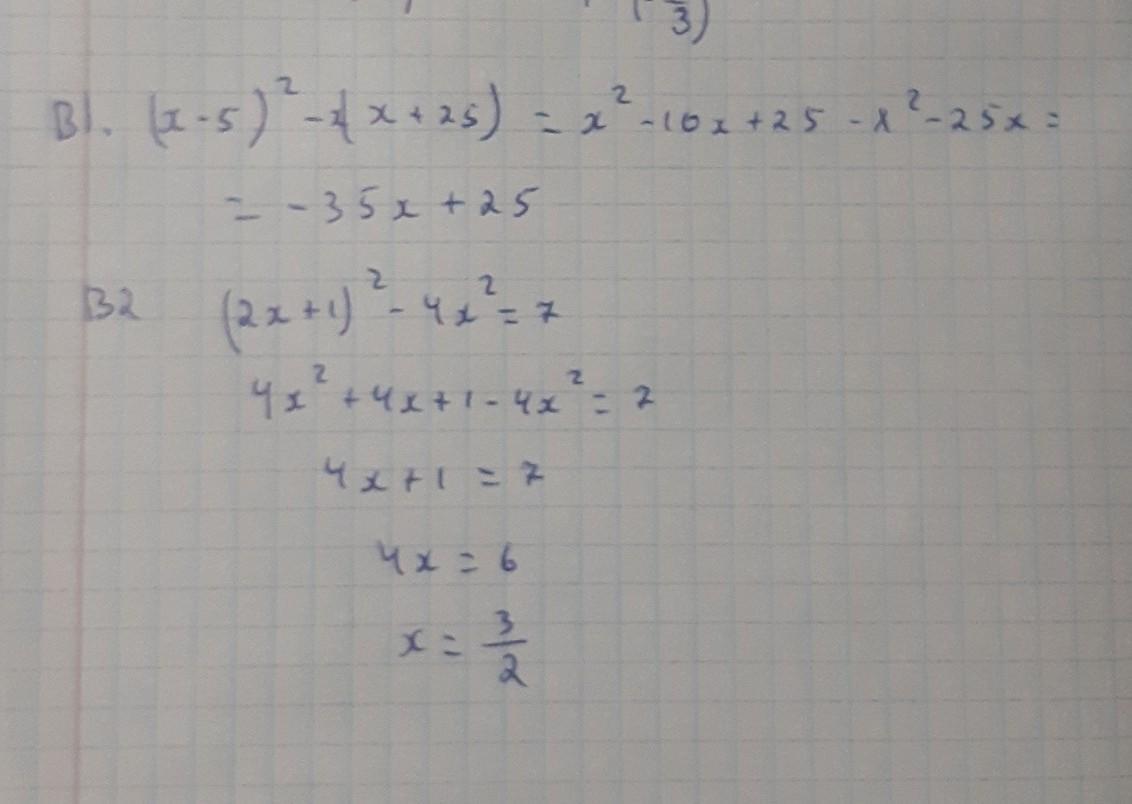 3)
B1. (x-5)² - x(x+25) = x² - 10x + 25 - x² - 25x =
= - 35x + 25
B2 (2x+1)² - 4x² = 7
4x² + 4x + 1 - 4x² = 7
4x + 1 = 7
4x = 6
x = 3/2